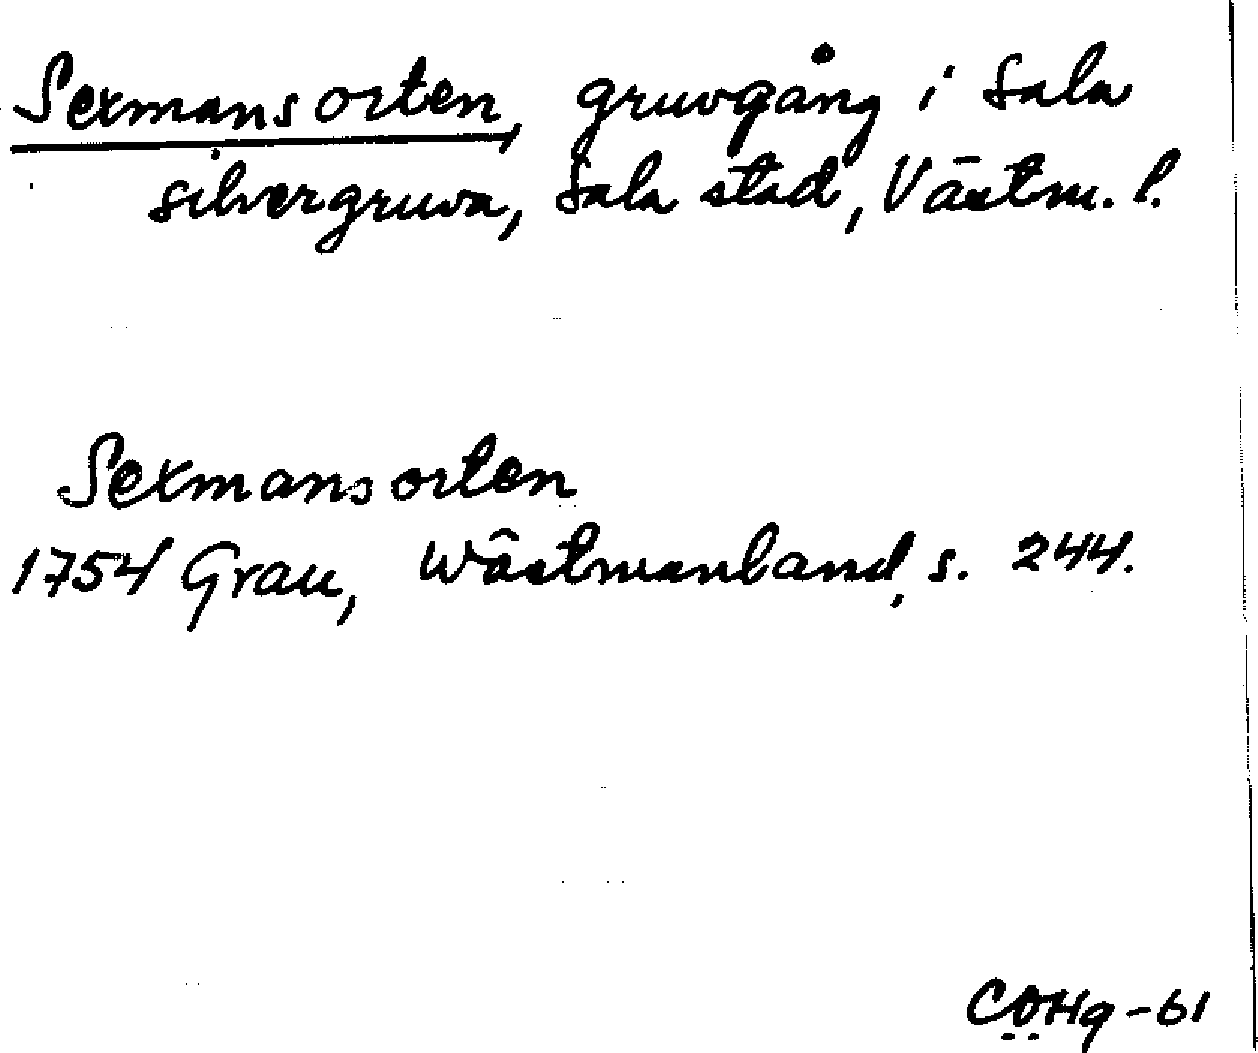 Sexmansorten, gruvgång i Sala
silvergruva, Sala stad, Västm. l.
Sexmansorten
1754 Grau, Wästmanland, s. 244.
COHg-61